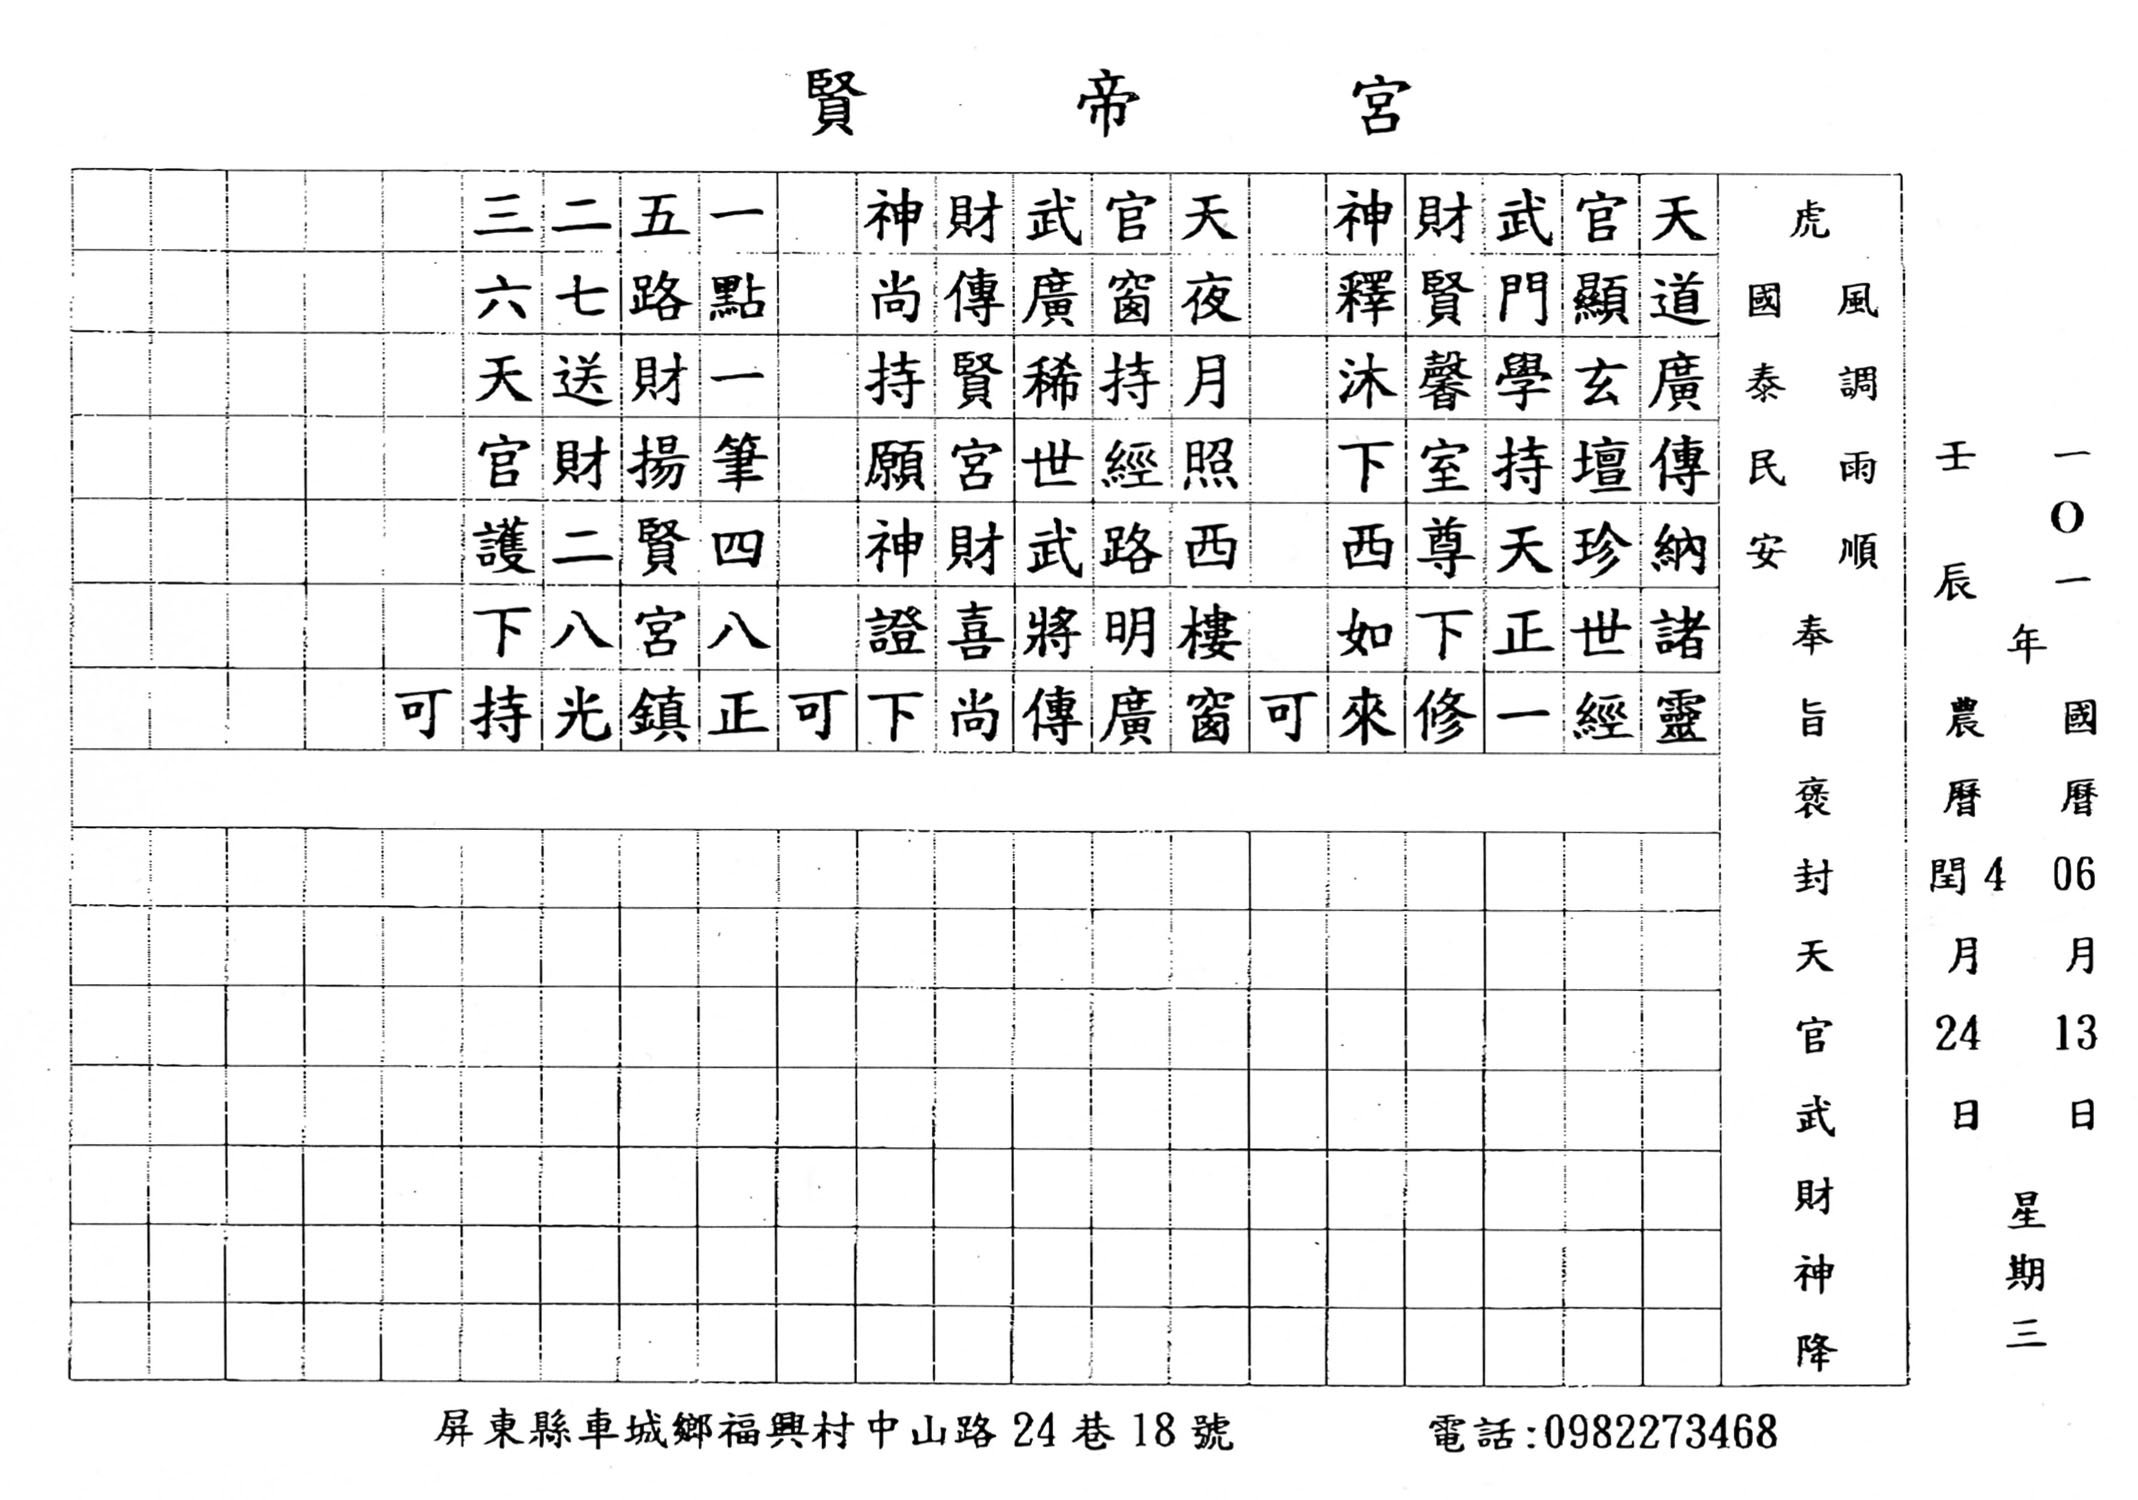 賢帝宮
一〇一年 國曆06月13日 星期三
壬辰 農曆閏4月24日
虎
風調雨順
國泰民安
奉旨褒封天官武財神降
天道廣傳納諸靈
官顯玄壇珍世經
武門學持天正一
財賢馨室尊下修
神釋沐下西如來
可
天夜月照西樓窗
官窗持經路明廣
武廣稀世武將傳
財傳賢宮財喜尚
神尚持願神證下
可
一點一筆四八正
五路財揚賢宮鎮
二七送財二八光
三六天官護下持
可
屏東縣車城鄉福興村中山路24巷18號
電話:0982273468